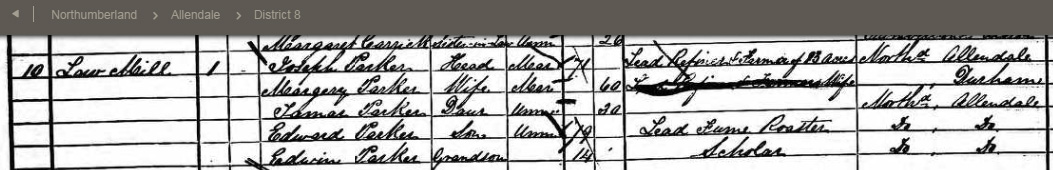 Northumberland > Allendale > District 8
Margaret Carrick Sister-in-Law Unm 26
10 Law Mill 1 Joseph Parker Head Mar 71 Lead Refiner & Farmer of 13 acres North.d Allendale
Margery Parker Wife Mar 60 Wife , Durham
Tamar Parker Daur Unm 30 North.d , Allendale
Edward Parker Son Unm 19 Lead Fume Roaster Do , Do
Edwin Parker Grandson 14 Scholar Do , Do